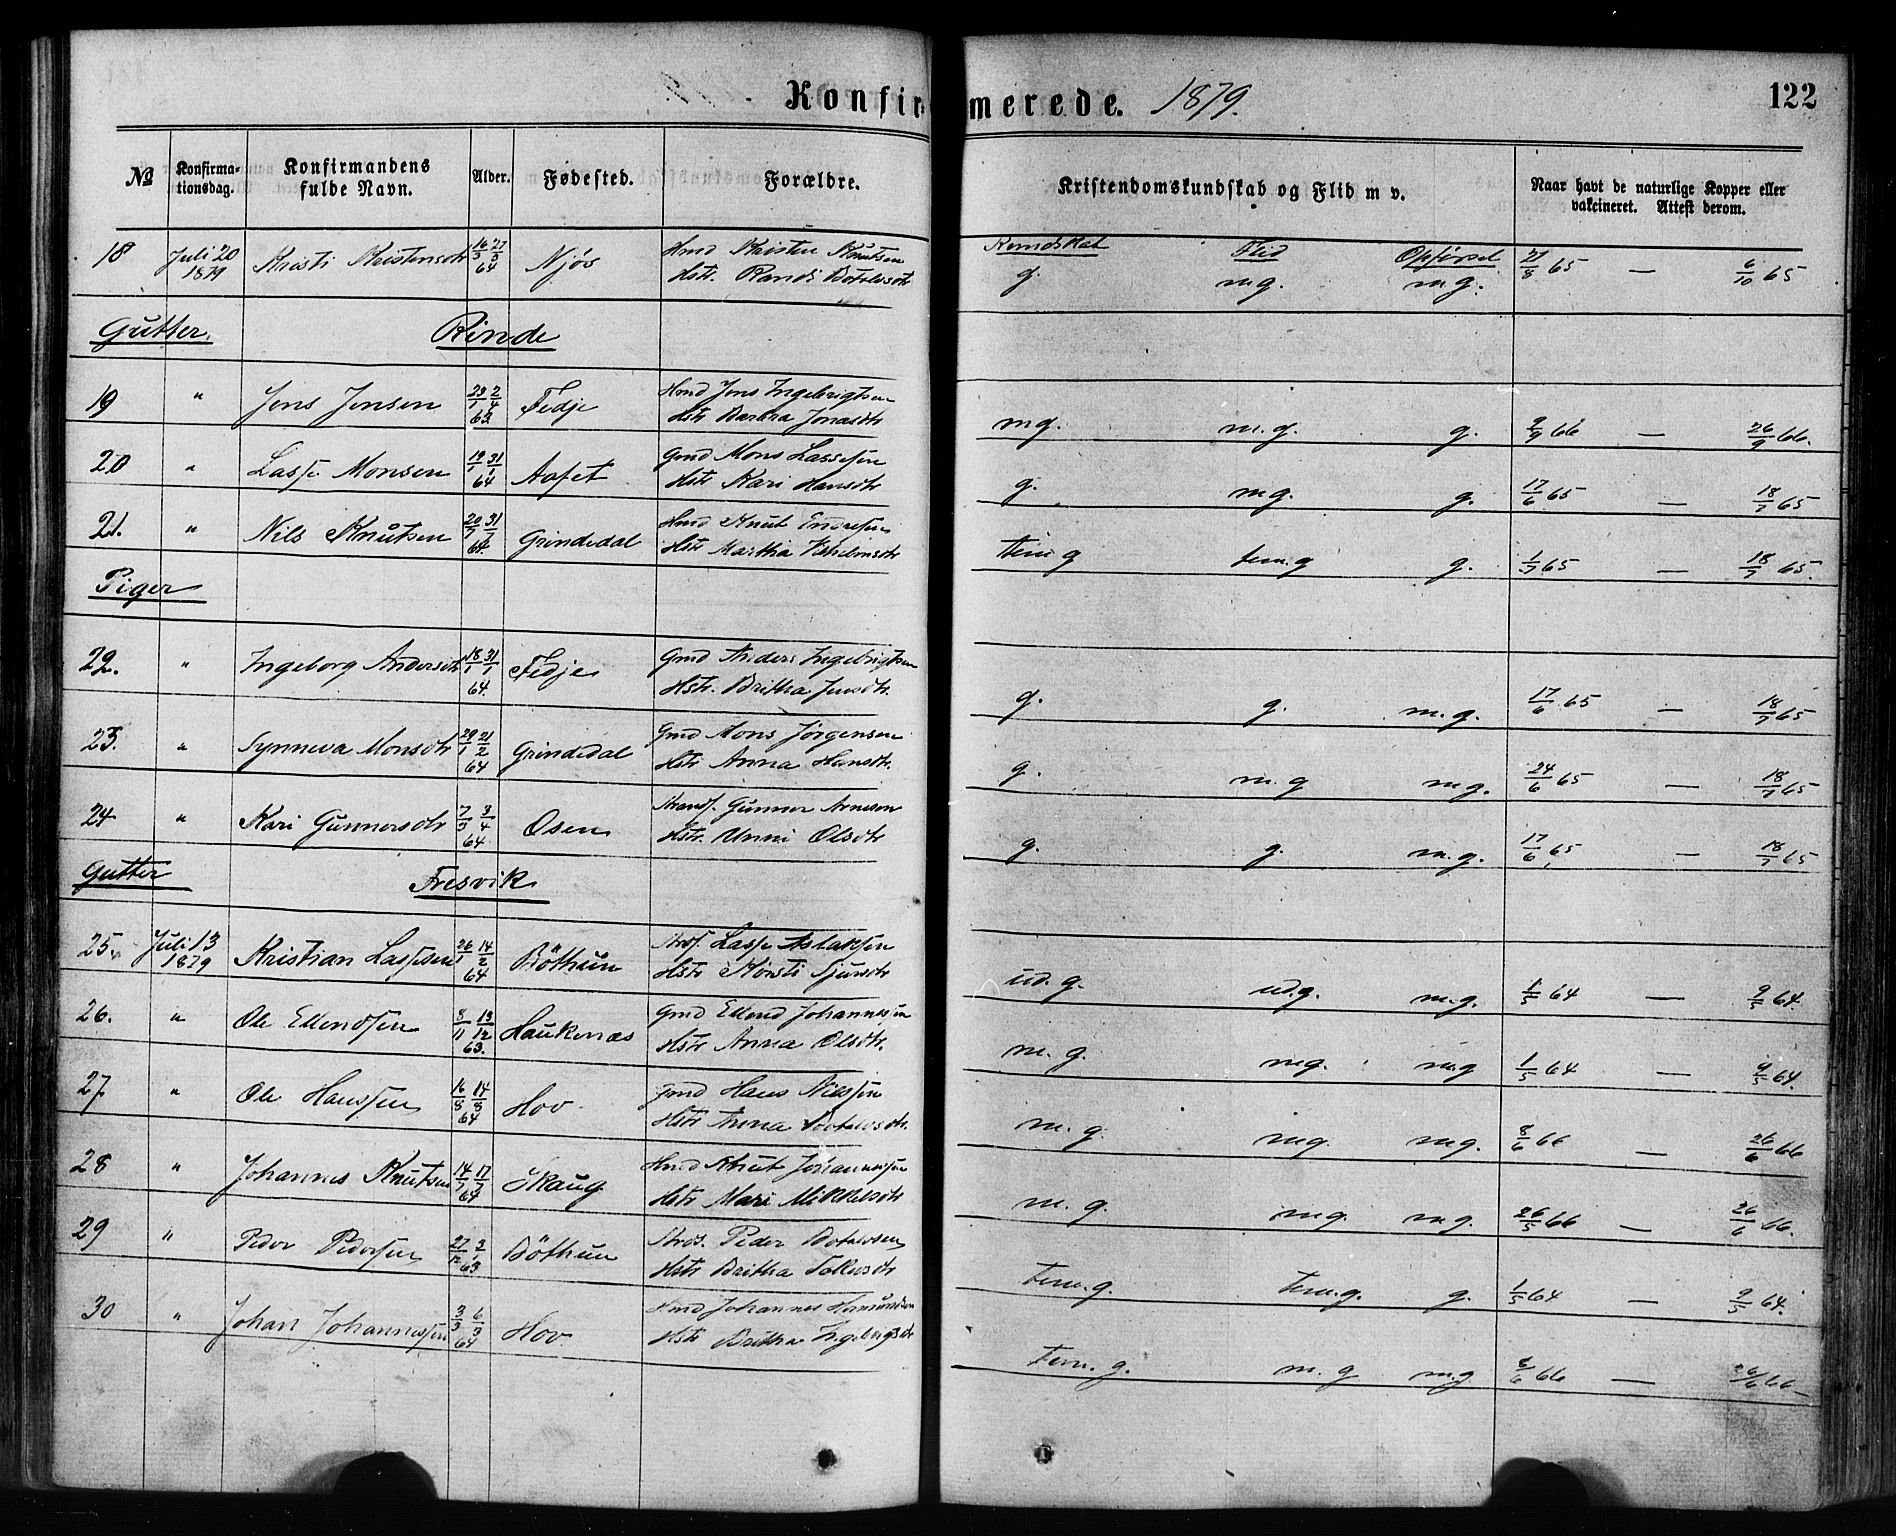 Konfirmerede. 1879. 122
No Konfirmationsdag. Konfirmandens fulde Navn. Alder. Fødested. Forældre. Kristendomskundskab og Flid m v. Naar havt de naturlige Kopper eller vakcineret. Attest derom.
Kundskab Flid Opførsel
18 Juli 20 1879 Kristi Kristensdtr 16/3 27/3 64 Njøs Hmd Kristen Knutsen Hstr. Randi Botolvsdtr g. mg. mg. 21/8 65 — 6/10 65
Gutter. Rinde
19 " Jens Jensen 23/1 2/4 63. Fedje Hmd Jens Ingebrigtsen Hstr Barbra Jonasdtr mg. m.g. g. 9/9 66 — 26/9 66.
20 " Lasse Monsen 19/1 31/1 64 Aafet Gmd Mons Lassesen Hstr Kari Hansdtr g. mg. g. 17/6 65 — 18/7 65
21. " Nils Knutsen 20/7 31/7 64. Grindedal Hmd Knut Endresen Hstr Martha tem g tem.g g. 1/7 65 — 18/7 65.
Piger
22. " Ingeborg Andersdtr 18/1 31/1 64. Fedje Gmd Anders Ingebrigtsen Hstr. Britha Jensdtr. g. g. m.g. 17/6 65 — 18/7 65
23. " Synneva Monsdtr 29/1 21/2 64 Grindedal Gmd Mons Jørgensen Hstr Anna Hansdtr. g. m.g mg. 24/6 65 — 18/7 65
24 " Kari Gunnarsdtr 7/3 3/4 64. Osen Strands. Gunnar Arneson Hstr. Unni Olsdtr g. g. m.g. 17/6 65 — 18/7 65
Gutter Fresvik
25. Juli 13 1879 Kristian Lassesen 26/1 14/2 64 Bøthun Strds. Lasse Aslaksen Hstr Kirsti Sjursdtr ud.g. ud.g. m.g. 1/5 64 — 9/5 64.
26. " Ole Ellendsen 8/11 13/12 63. Haukenæs Gmd Ellend Johannessen Hstr Anna Olsdtr. m.g. mg. mg 1/5 64 — 9/5 64.
27 " Ole Hanssen 16/8 14/8 64 Hov Gmd Hans Nilssen Hstr Anna Botolvsdtr. m.g. mg. mg. 8/6 66 — 26/6 66
28 " Johannes Knutsen 14/7 17/7 64 Skaug Hmd Knut Johannessen Hstr Mari Mikkelsdtr m.g. mg. mg. 26/5 66 — 26/6 66.
29 " Peder Pedersen 27/12 3/1 63 Bøthun Strds. Peder Botolvsen Hstr Britha tem.g. tem.g. g. 1/5 64 — 9/5 64.
30 " Johan Johannessen 3/3 6/3 64 Hov. Hmd Johannes Hstr Britha Ingebrigsdtr tem.g. m.g mg 8/6 66 — 26/6 66